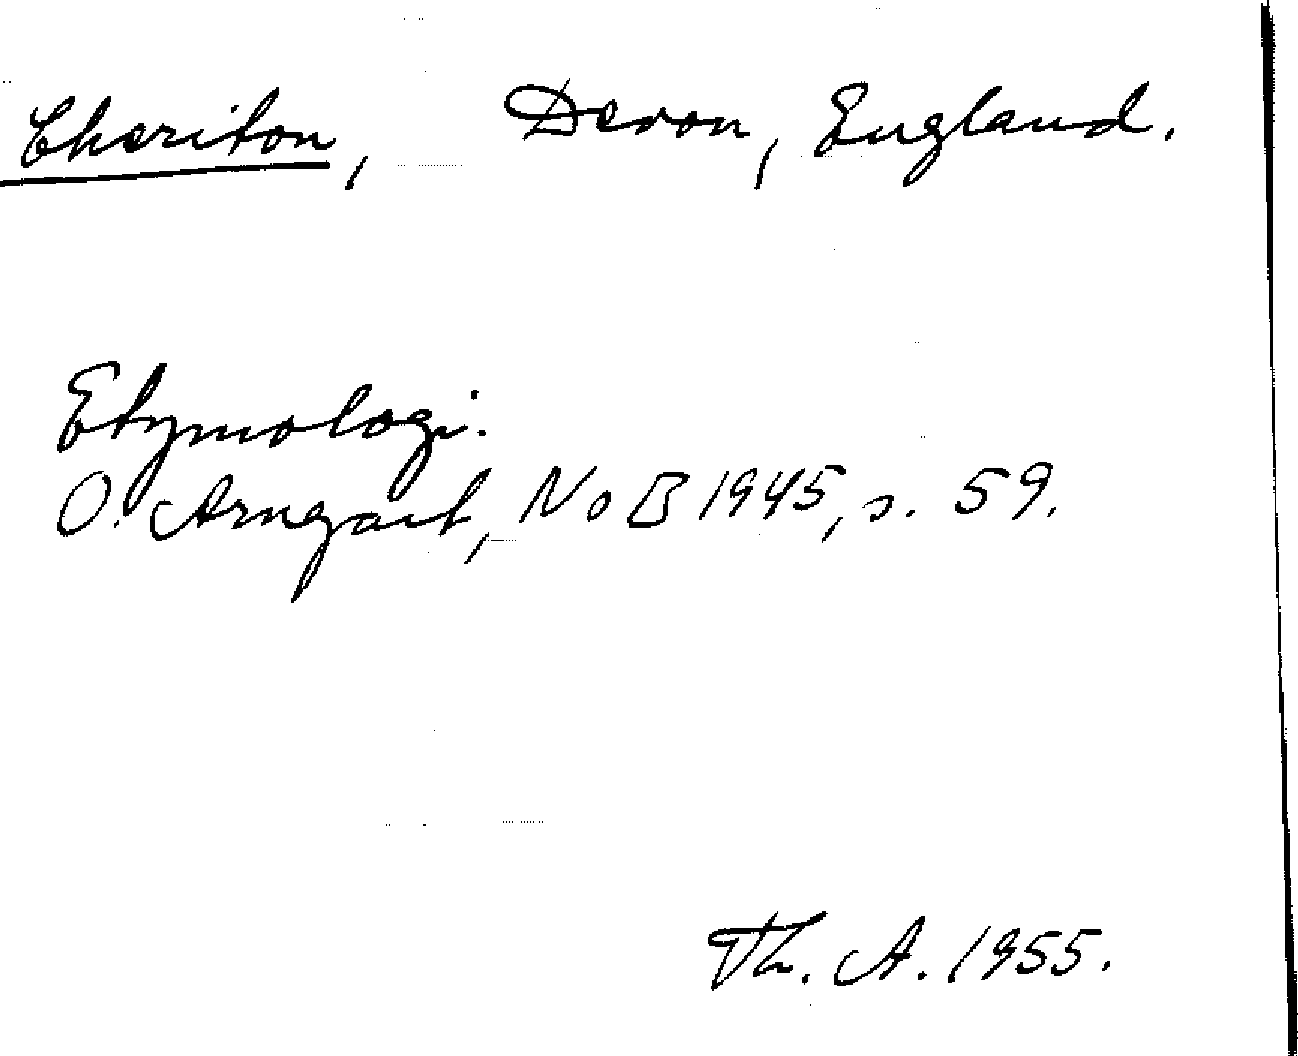 Cheriton, Devon, England.
Etymologi.
O. Arngart, NoB 1945, s. 59.
Th. A. 1955.